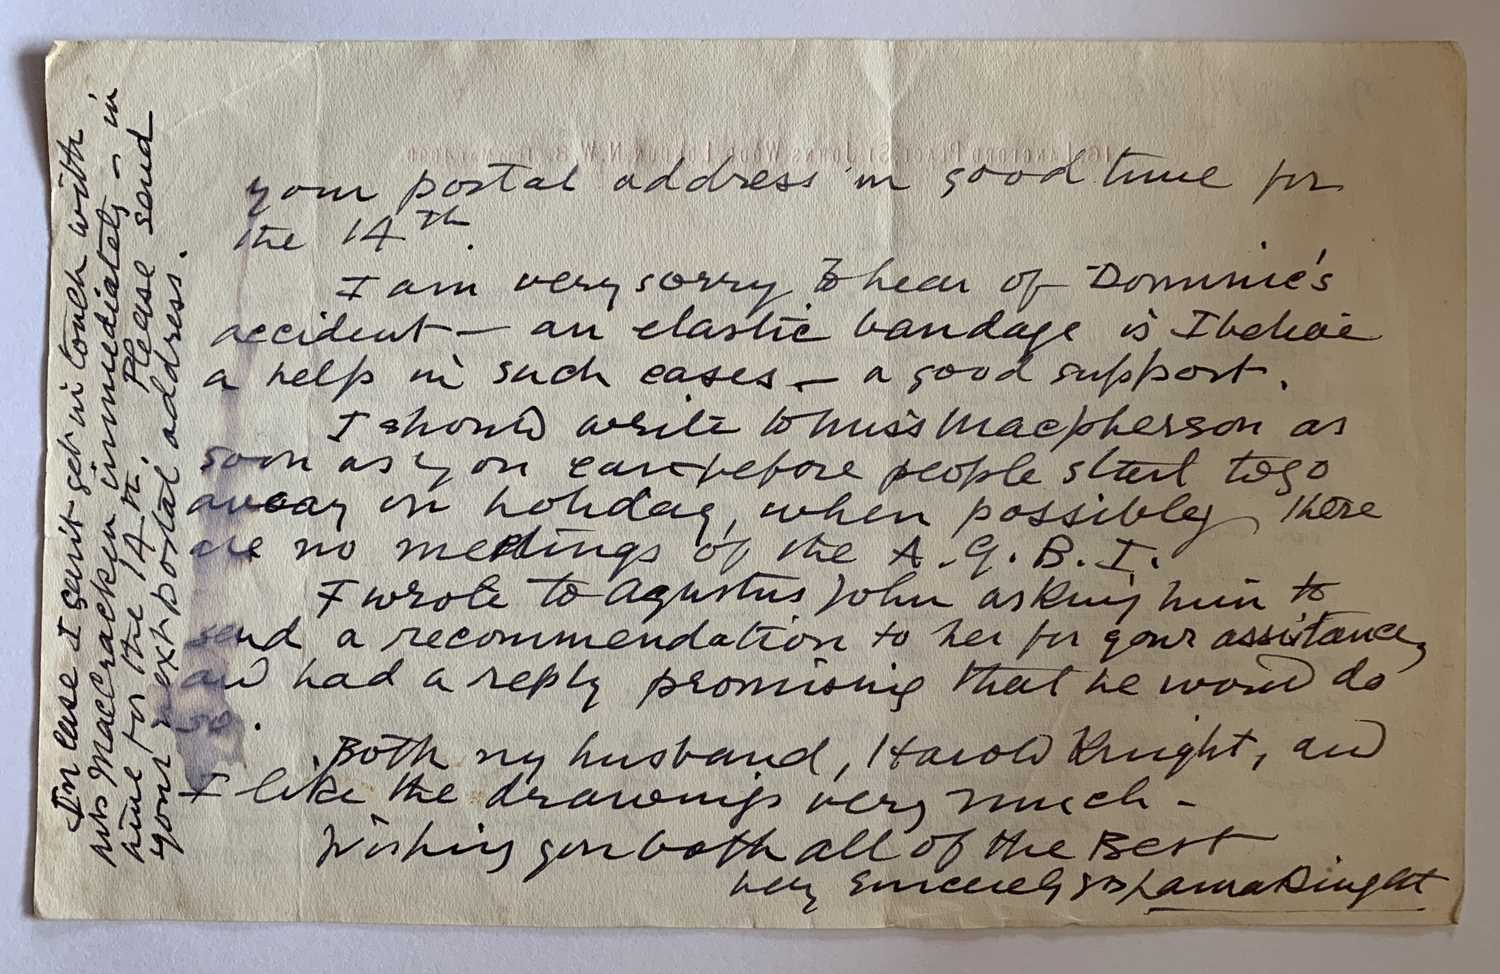 your postal address in good time for
the 14th.
I am very sorry to hear of Dominic's
accident — an elastic bandage is I believe
a help in such cases — a good support.
I should write to Miss Macpherson as
soon as you can before people start to go
away on holiday, when possibly there
are no meetings of the A.G.B.I.
I wrote to Agustus John asking him to
send a recommendation to her for your assistance,
and had a reply promising that he would do
so.
Both my husband, Harold Knight, and
I like the drawings very much —
Wishing you both all of the Best
Very Sincerely yrs Laura Knight
In case I can't get in touch with
Mrs MacCracken immediately — in
time for the 14th. Please send
your next postal address.
16 Langford Place, St Johns Wood, London, N.W.8.